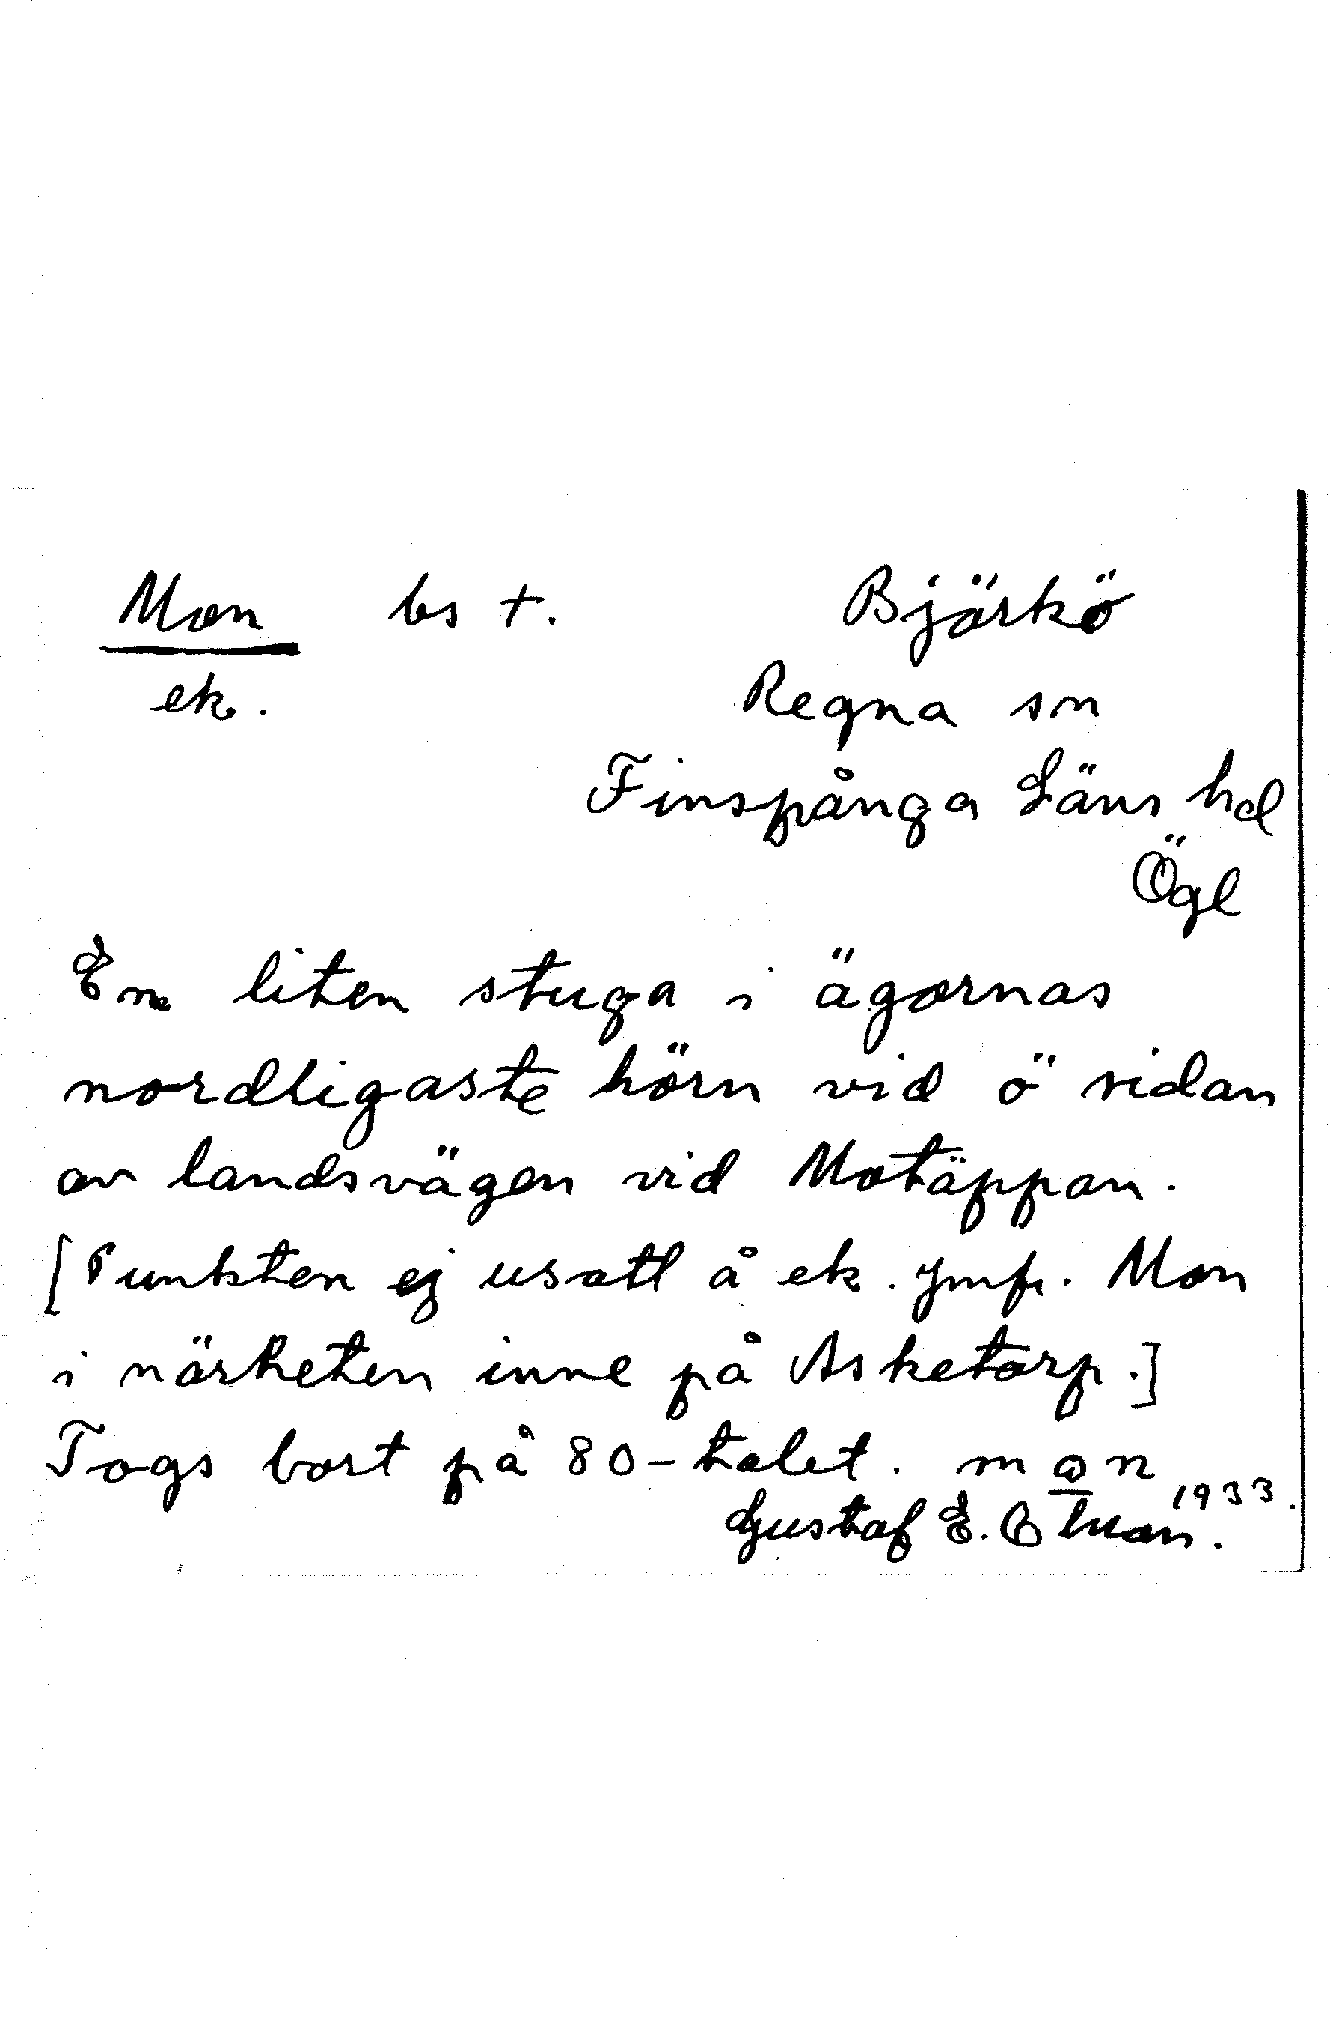 Mon bs +. Björkö
ek. Regna sn
Finspånga Läns hd
Ögl
En liten stuga i ägornas
nordligaste hörn vid ö sidan
av landsvägen vid Motäppan.
[Punkten ej usatt å ek. jmfr. Mon
i närheten inne på Asketorp.]
Togs bort på 80-talet. mon
1933.
Gustaf E.